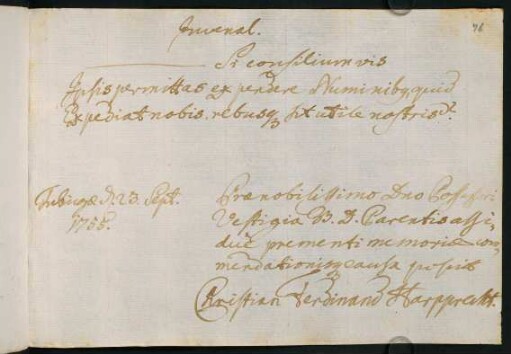 76
Juvenal.
Si consilium vis
Ipsis permittas expendere Numinibq, quid
Expediat nobis, rebusq sit utile nostris.
Tubingæ d. 23. Sept.
1755.
Prænobilissimo Dno Possessori
Vestigia B. D. Parentis assi,
due prementi memoriæ com
mendationisq causa posuit
Christian Ferdinand Harpprecht.